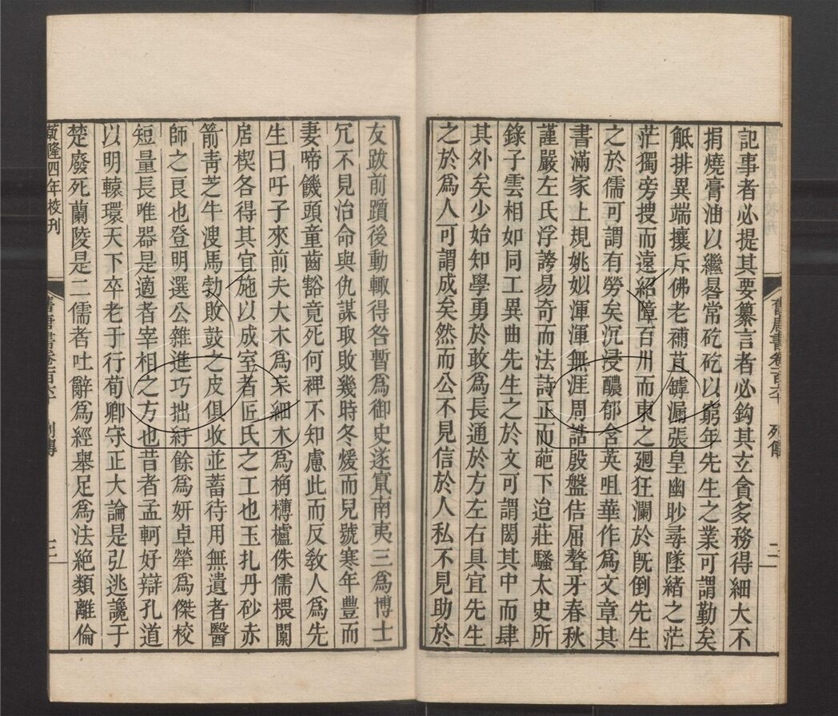 記事者必提其要纂言者必鈎其玄貪多務得細大不
捐燒膏油以繼晷常矻矻以窮年先生之業可謂勤矣
觝排異端攘斥佛老補苴罅漏張皇幽眇尋墜緒之茫
茫獨旁搜而遠紹障百川而東之廻狂瀾於既倒先生
之於儒可謂有勞矣沉浸醲郁含英咀華作為文章其
書滿家上規姚姒渾渾無涯周誥殷盤佶屈聱牙春秋
謹嚴左氏浮誇易奇而法詩正而葩下迨莊騷太史所
錄子雲相如同工異曲先生之於文可謂閎其中而肆
其外矣少始知學勇於敢為長通於方左右具宜先生
之於為人可謂成矣然而公不見信於人私不見助於
舊唐書卷一百六十 列傳 二
友跋前躓後動輙得咎暫為御史遂竄南夷三為博士
冗不見治命與仇謀取敗幾時冬煖而兒號寒年豐而
妻啼饑頭童齒豁竟死何裨不知慮此而反教人為先
生曰吁子來前夫大木為杗細木為桷欂櫨侏儒椳闑
扂楔各得其宜施以成室者匠氏之工也玉扎丹砂赤
箭青芝牛溲馬勃敗鼓之皮俱收並蓄待用無遺者醫
師之良也登明選公雜進巧拙紆餘為妍卓犖為傑校
短量長唯器是適者宰相之方也昔者孟軻好辯孔道
以明轅環天下卒老于行荀卿守正大論是弘逃讒于
楚廢死蘭陵是二儒者吐辭為經舉足為法絕類離倫
乾隆四年校刊
舊唐書卷一百六十 列傳 三